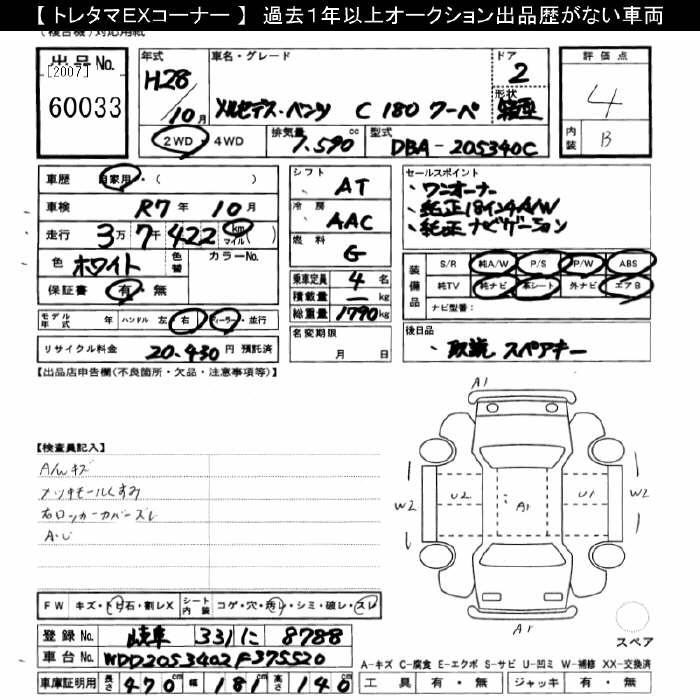 【トレタマEXコーナー】 過去1年以上オークション出品歴がない車両
(複合機)対応用紙
出品No.
[2007]
60033
年式 H28/10月
車名・グレード メルセデス・ベンツ C180 クーペ
ドア 2
形状 箱型
評価点 4
内装 B
2WD・4WD
排気量 1.590cc
型式 DBA-205340C
車歴 自家用・( )
車検 R7年 10月
走行 3万7千422 km マイル( )
色 ホワイト 色替 カラーNo.
保証書 有・無
モデル年式 年 ハンドル 左 右 ディーラー・並行
リサイクル料金 20.430円 預託済
シフト AT
冷房 AAC
燃料 G
乗車定員 4名
積載量 ー kg
総重量 1790kg
名変期限 月 日
セールスポイント
・ワンオーナー
・純正18インチA/W
・純正ナビゲーション
装備品
S/R 純A/W P/S P/W ABS
純TV 純ナビ 革シート 外ナビ エアB
ナビ型番:
後日品
・取説 スペアキー
【出品店申告欄(不良箇所・欠品・注意事項等)】
【検査員記入】
A/Wキズ
メッキモールくすみ
右ロッカーカバーズレ
A・U
A1
W2 U2 A1 U1 W2
A1
スペア
FW キズ・トビ石・割レX シート内装 コゲ・穴・汚レ・シミ・破レ・スレ
登録No. 岐阜 331 に 8788
車台No. WDD2053402F375520
車庫証明用 長さ 470cm 幅 181cm 高さ 140cm
A-キズ C-腐食 E-エクボ S-サビ U-凹ミ W-補修 XX-交換済
工具 有・無 ジャッキ 有・無